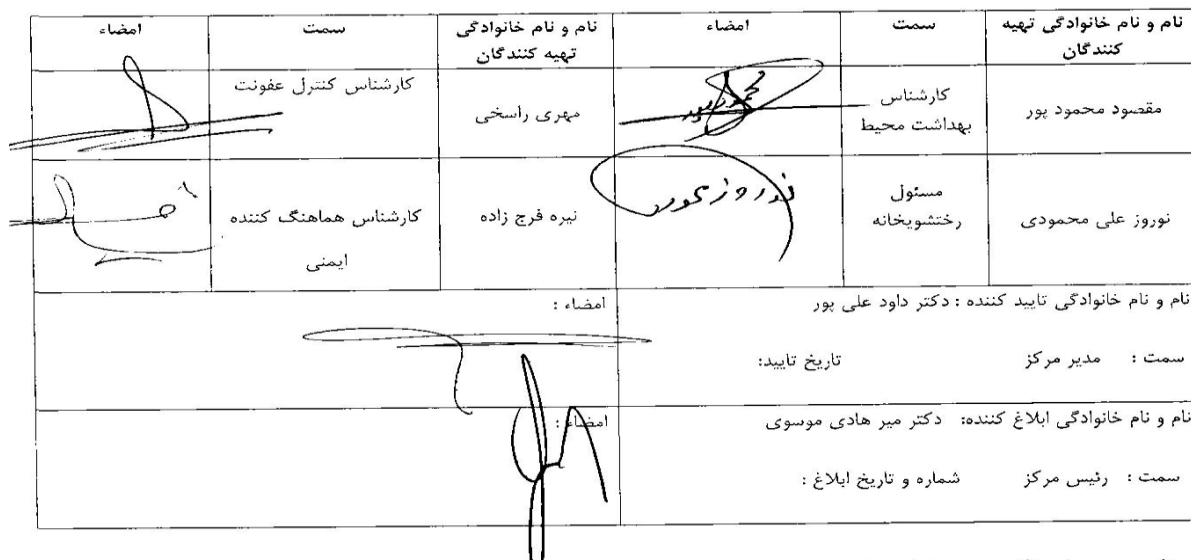 نام و نام خانوادگی تهیه کنندگان
سمت
امضاء
نام و نام خانوادگی تهیه کنندگان
سمت
امضاء
مقصود محمود پور
کارشناس بهداشت محیط
محمودپور
مهری راسخی
کارشناس کنترل عفونت
نوروز علی محمودی
مسئول رختشویخانه
نیره فرج زاده
کارشناس هماهنگ کننده
ایمنی
نام و نام خانوادگی تایید کننده : دکتر داود علی پور
امضاء :
سمت : مدیر مرکز تاریخ تایید:
نام و نام خانوادگی ابلاغ کننده: دکتر میر هادی موسوی
امضاء :
سمت : رئیس مرکز شماره و تاریخ ابلاغ :